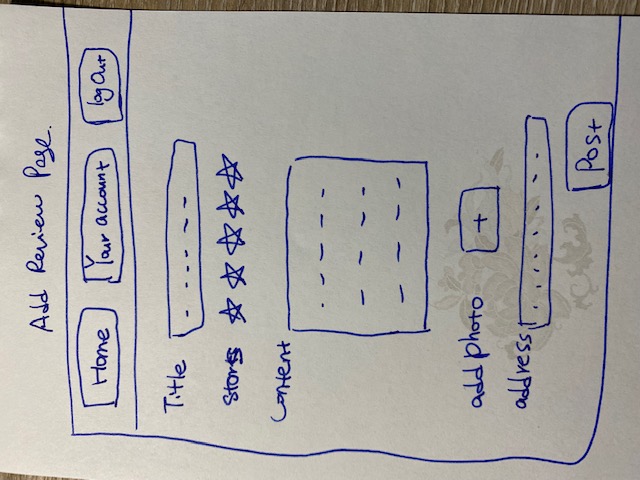 Add Review Page.
Home Your account log Out
Title
stars
Content
add photo +
address
Post